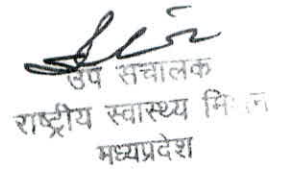 उप संचालक
राष्ट्रीय स्वास्थ्य मिशन
मध्यप्रदेश